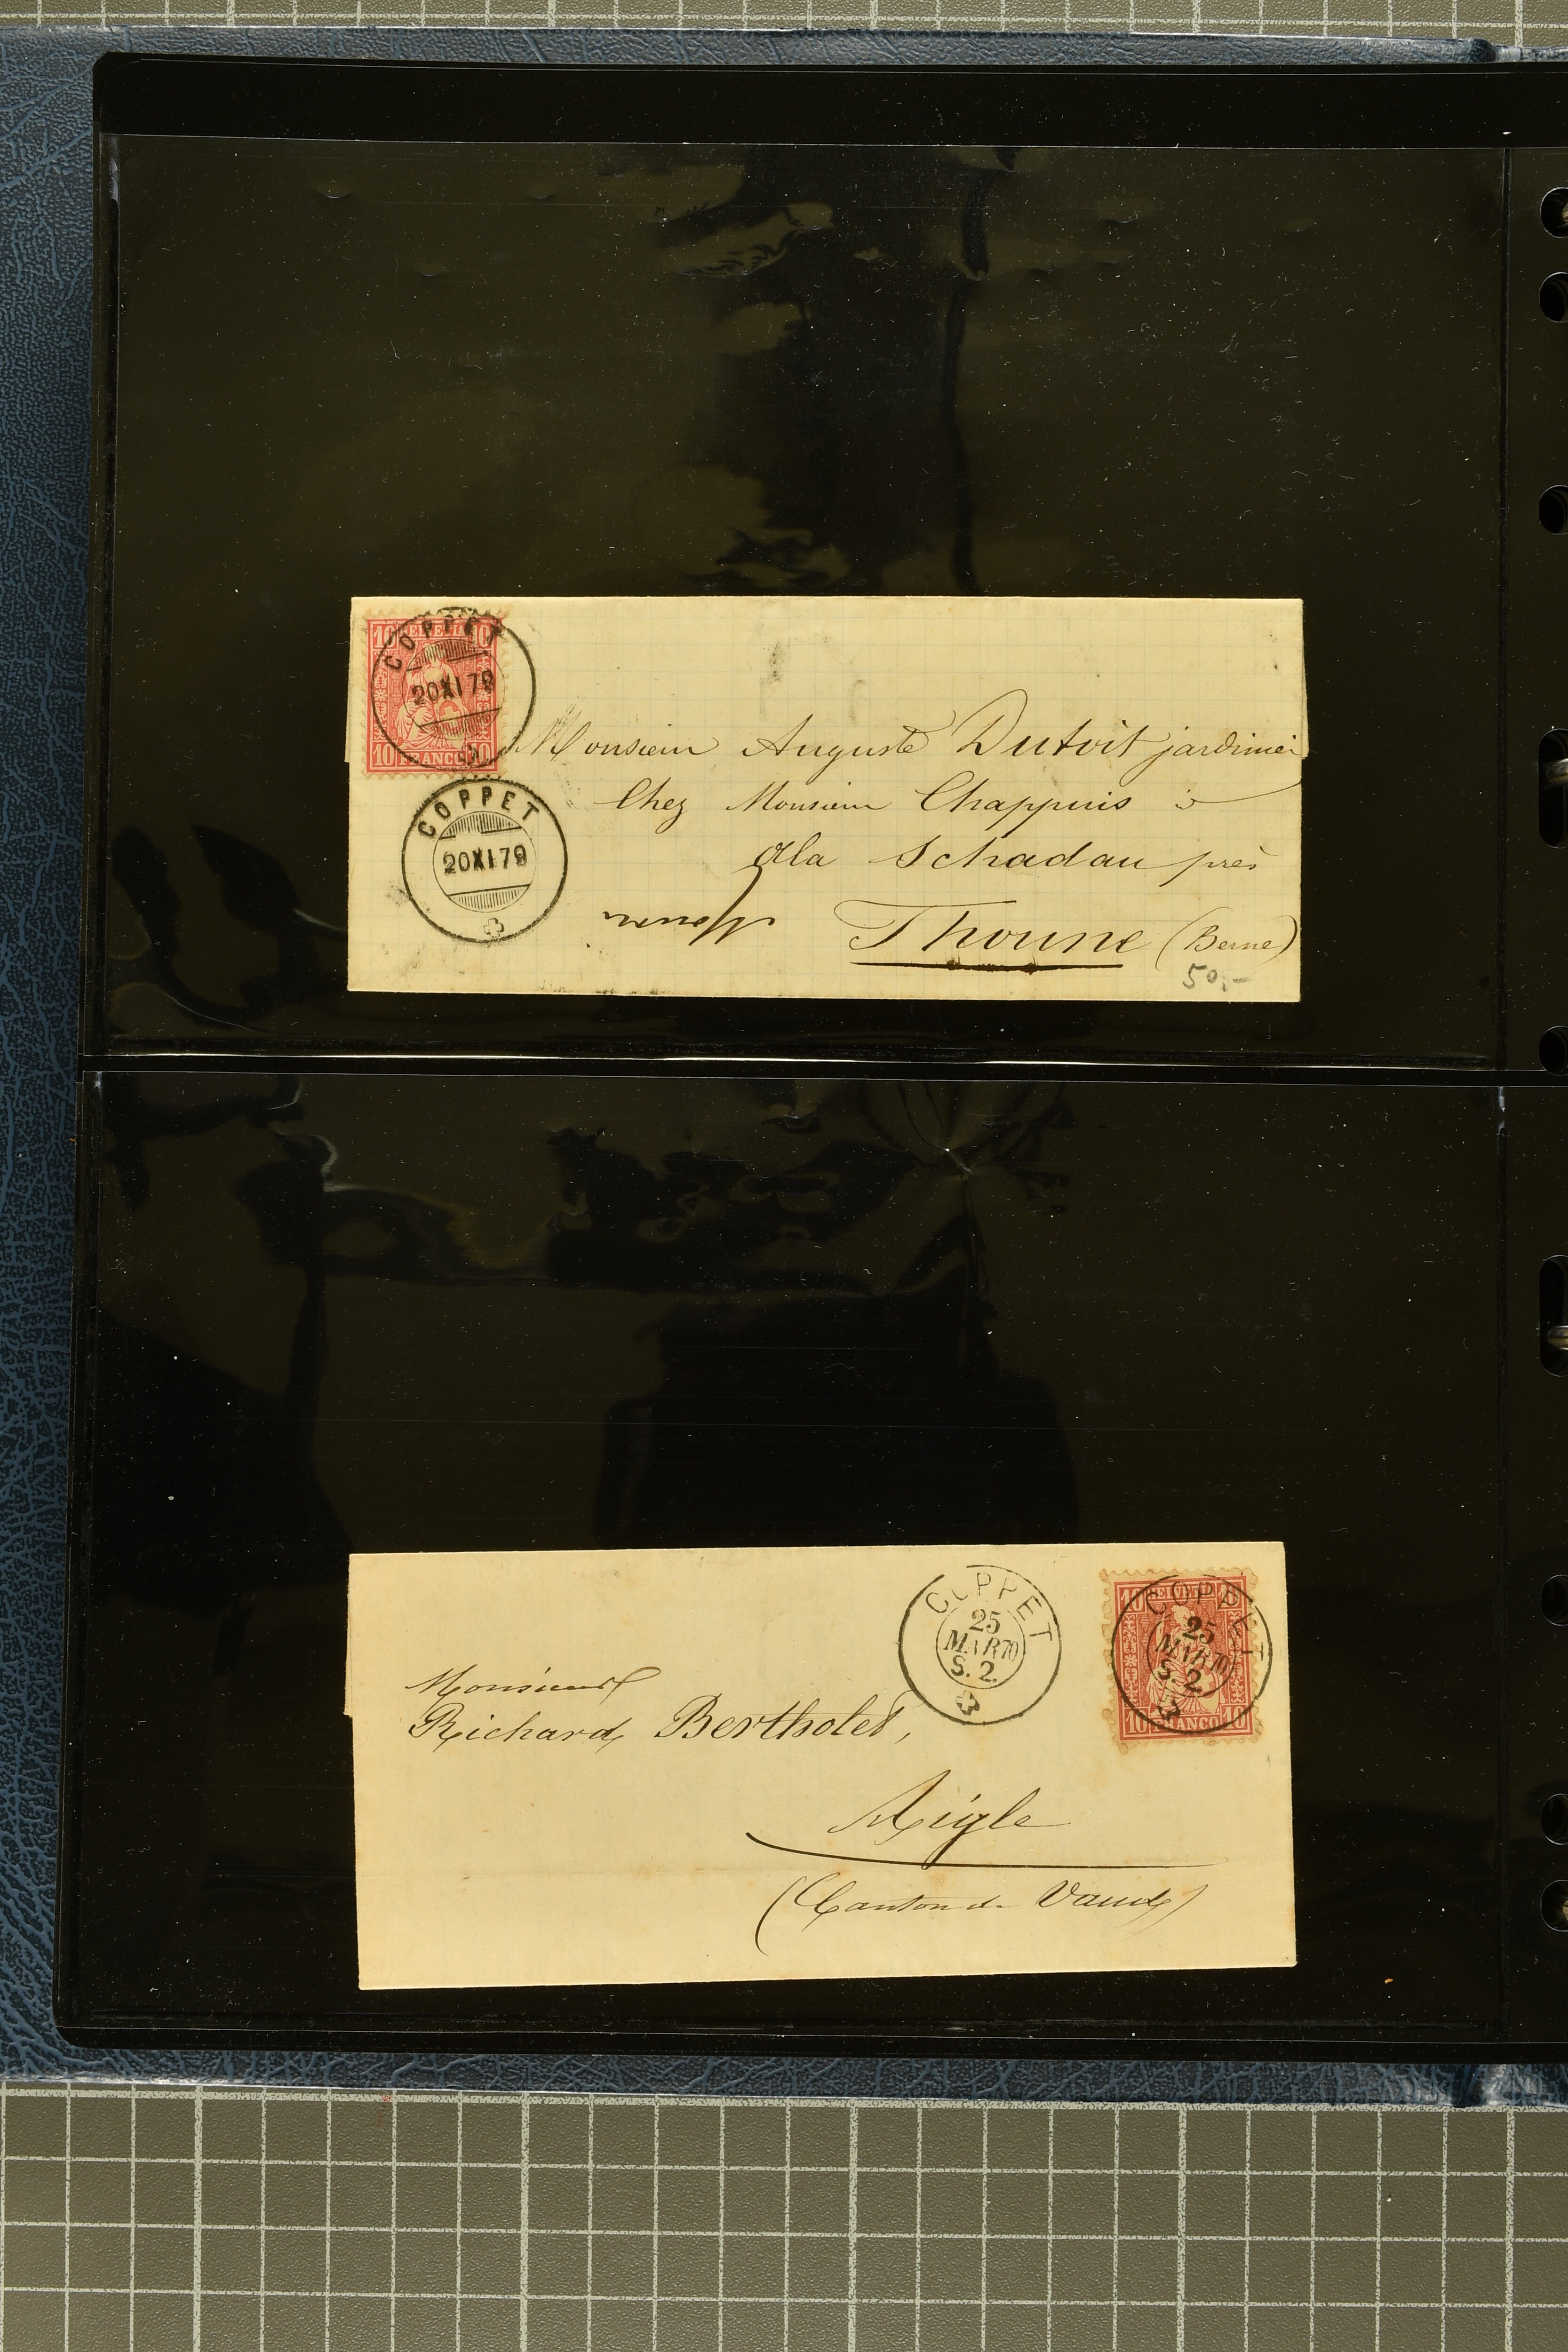 10 HELVETIA 10
COPPET
20 XI 79
10 FRANCO 10
COPPET
20 XI 79
Monsieur Auguste Dutoit jardinier
Chez Monsieur Chappuis à
à la Schadau près
Thoune (Berne)
50.-
COPPET
25
MAR 70
S. 2.
10 HELVETIA 10
COPPET
25
MAR 70
S. 2.
10 FRANCO 10
Monsieur
Richard Bertholet,
Aigle
(Canton de Vaud)